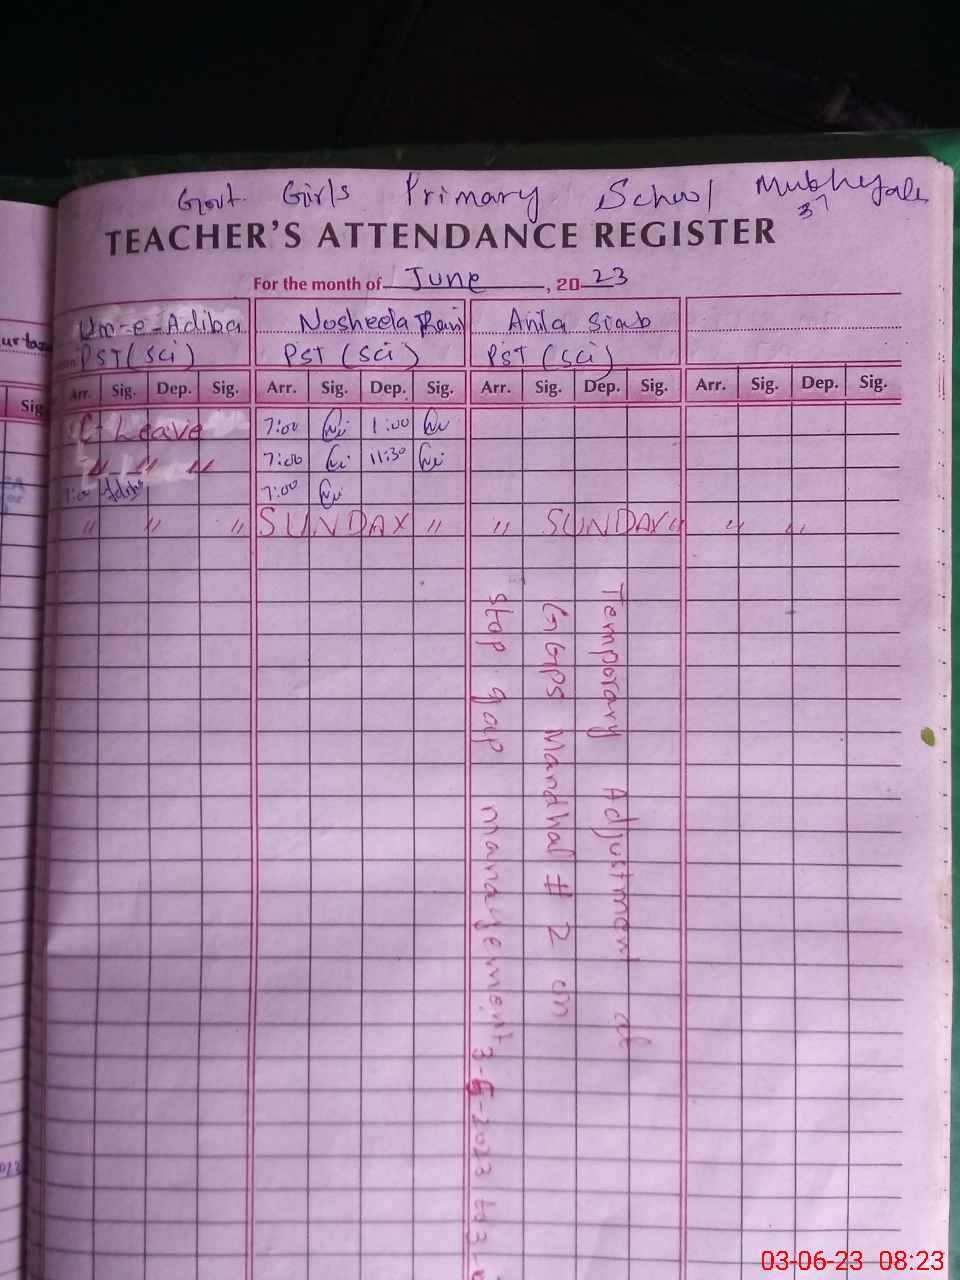 Govt. Girls Primary School
37
TEACHER'S ATTENDANCE REGISTER
For the month of June, 2023
Um-e-Adiba Nosheela Anila
PST (Sci) PST (Sci) PST (Sci)
Arr. Sig. Dep. Sig. Arr. Sig. Dep. Sig. Arr. Sig. Dep. Sig. Arr. Sig. Dep. Sig.
C- Leave 7:00 1:00
" " " 7:00 11:30
7:00
" " " SUNDAY " " SUNDAY " " "
Temporary Adjustment at
GGPS Mandhal # 2 on
stop gap management 3-6-2023 to 3-
Sig
03-06-23 08:23